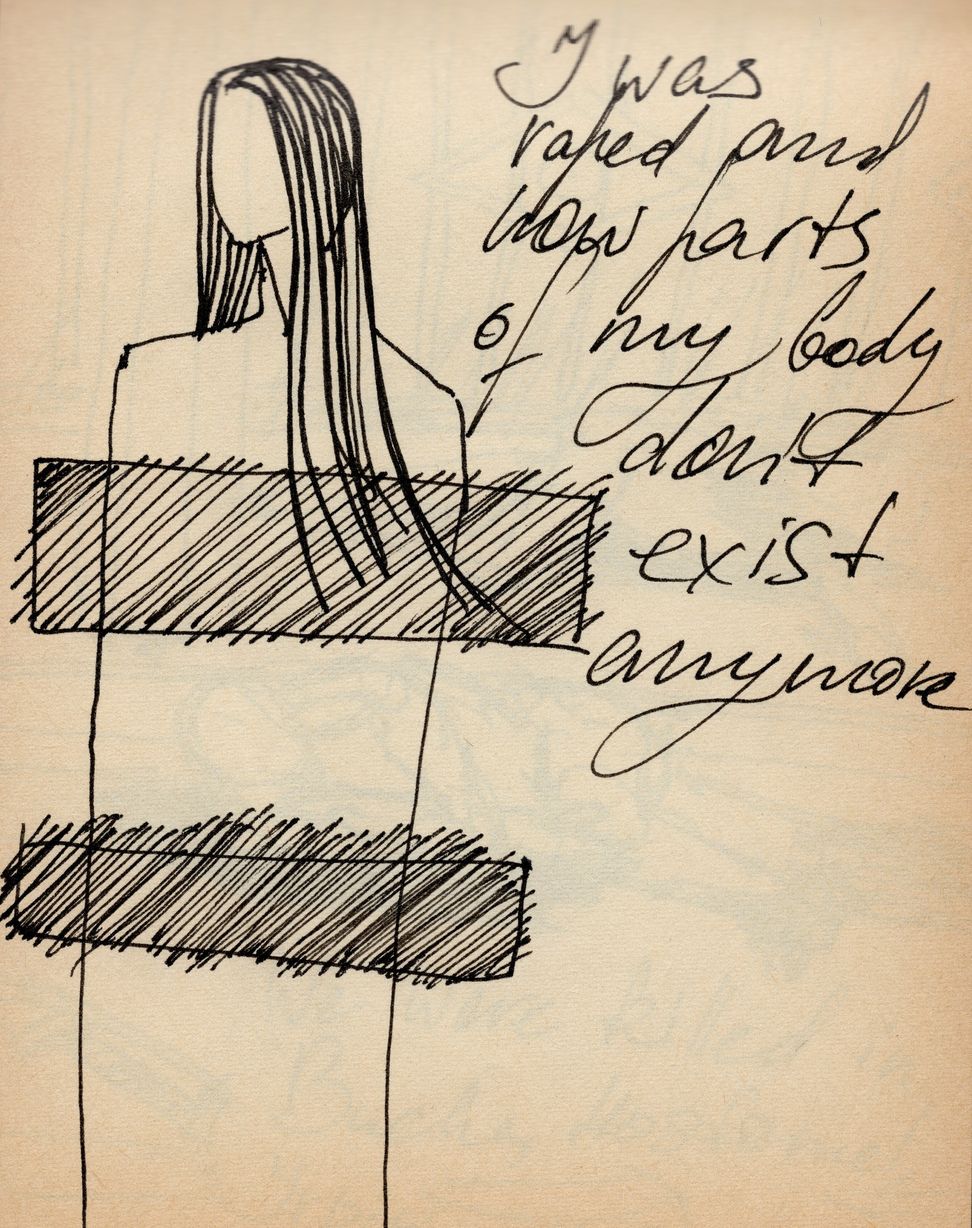 I was
raped and
now parts
of my body
don't
exist
anymore